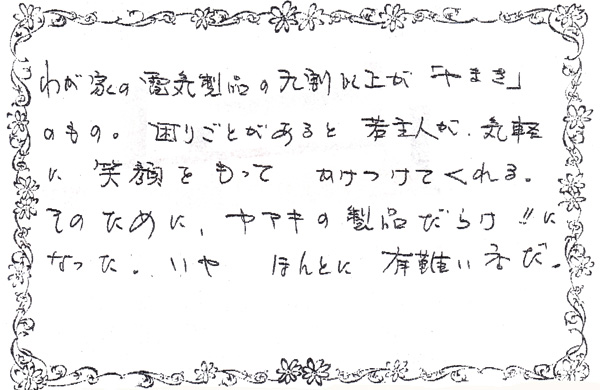 わが家の電気製品の九割以上が「やまき」
のもの。困りごとがあると若主人が、気軽
に笑顔をもってかけつけてくれる。
そのために、ヤマキの製品だらけ!!に
なった。いやほんとに有難い だ。